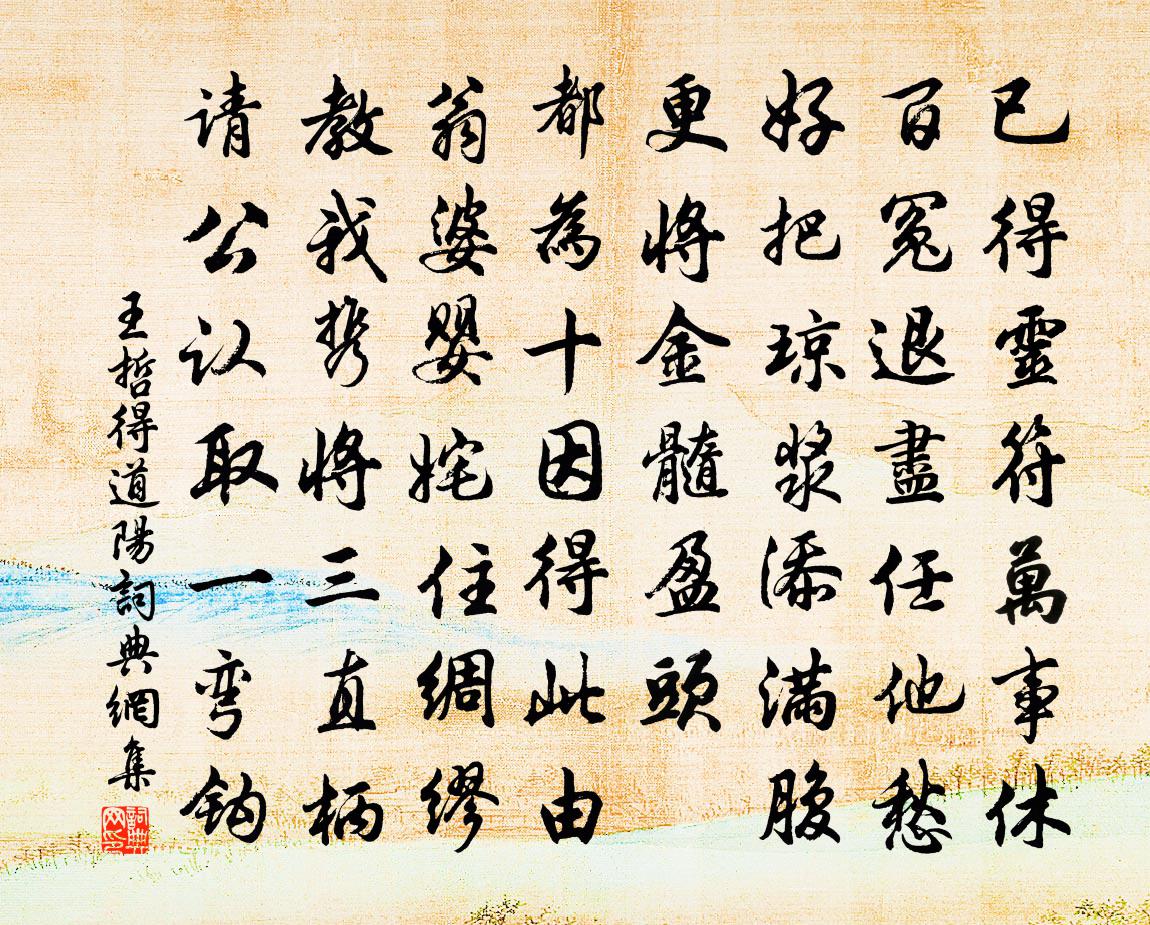 已得靈符萬事休
百冤退盡任他愁
好把琼漿添滿腹
更將金髓盈頭
都為十因得此由
翁婆嬰姹住綢繆
教我携將三直柄
请公认取一弯鈎
王哲得道陽詞典網集
詞典网印